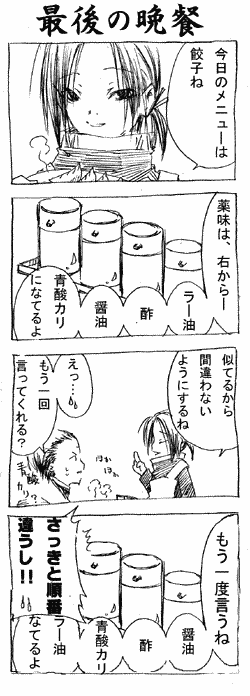 最後の晩餐
今日のメニューは
餃子ね
薬味は、右からー
ラー油
酢
醤油
青酸カリ
になてるよ
似てるから
間違わない
ようにするね
えっ…
もう一回
言ってくれる？
ほか
ほか
青酸
カリ？
もう一度言うね
醤油
酢
青酸カリ
ラー油
になてるよ
さっきと順番
違うし！！